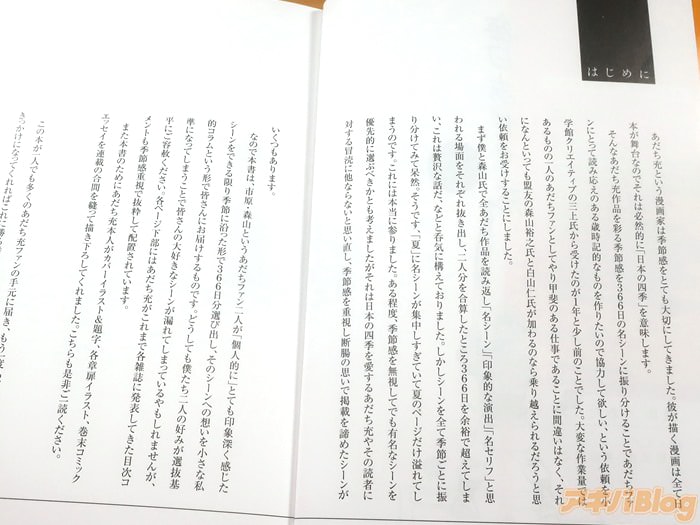 はじめに
あだち充という漫画家は季節をとても大切にしてきました。彼が描く漫画は全て日
本が舞台なのでそれは必然的に「日本の四季」を意味します。
そんなあだち充作品を彩る季節感を366日の名シーンに振り分けることであだちファ
ンにとって読み応えのある歳時記的なものを作りたいので協力して欲しい、という依頼を小
学館クリエイティブの三上氏から受けたのが1年と少し前のことでした。大変な作業量では
あるものの一人のあだちファンとしてやり甲斐のある仕事であることに間違いはなく、それ
になんといっても盟友の森山裕之氏と白山仁氏が加わるのなら乗り越えられるだろうと思
い依頼をお受けすることにしました。
まず僕と森山氏で全あだち作品を読み返し「名シーン」「印象的な演出」「名セリフ」と思
われる場面をそれぞれ抜き出し、二人分を合算したところ366日を余裕で超えてしま
い、これは贅沢な話だ、などと呑気に構えておりました。しかしシーンを全て季節ごとに振
り分けてみて呆然。そうです、「夏」に名シーンが集中しすぎていて夏のページだけ溢れてし
まうのです。これには本当に参りました。ある程度、季節感を無視してでも有名なシーンを
優先的に選ぶべきかとも考えましたがそれは日本の四季を愛するあだち充やその読者に
対する冒涜に他ならないと思い直し、季節感を重視し断腸の思いで掲載を諦めたシーンが
いくつもあります。
なので本書は、市原・森山というあだちファン二人が「個人的に」とても印象深く感じた
シーンをできる限り季節に沿った形で366日分選び出し、そのシーンへの想いを小さな私
的コラムという形で皆さんにお届けするものです。どうしても僕たち二人の好みが選抜基
準になってしまうことで皆さんの大好きなシーンが漏れてしまっているやもしれませんが、
平にご容赦ください。各ページ下部にはあだち充がこれまで各雑誌に発表してきた目次コ
メントも季節感重視で抜粋して配置されています。
また本書のためにあだち充本人がカバーイラスト&題字、各章扉イラスト、巻末コミック
エッセイを連載の合間を縫って描き下ろしてくれました。こちらも是非ご一読ください。
この本が一人でも多くのあだち充ファンの手元に届き、もう一度
きっかけになってくれればこれに勝る
アキバBlog